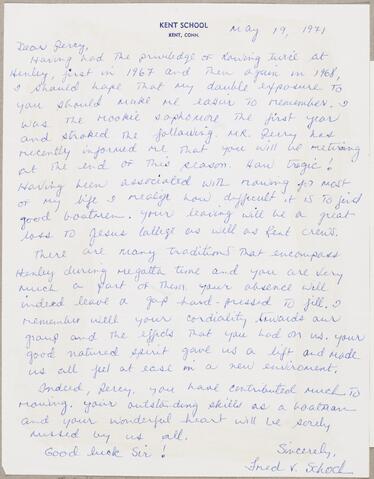 KENT SCHOOL
KENT, CONN.
May 19, 1971
Dear Percy,
Having had the priviledge of rowing twice at
Henley, first in 1967 and then again in 1968,
I should hope that my double exposure to
you should make me easier to remember. I
was the rookie sophomore the first year
and stroked the following. Mr. Perry has
recently informed me that you will be retiring
at the end of this season. How tragic!
Having been associated with rowing for most
of my life I realize how difficult it is to find
good boatmen. Your leaving will be a great
loss to Jesus College as well as Kent crews.
There are many traditions that encompass
Henley during regatta time and you are very
much a part of them. Your absence will
indeed leave a gap hard-pressed to fill. I
remember well your cordiality towards our
group and the effects that you had on us. Your
good natured spirit gave us a lift and made
us all feel at ease in a new enviroment.
Indeed, Percy, you have contributed much to
rowing. Your outstanding skills as a boatman
and your wonderful heart will be sorely
missed by us all.
Good luck Sir!
Sincerely,
Fred V. Schoch